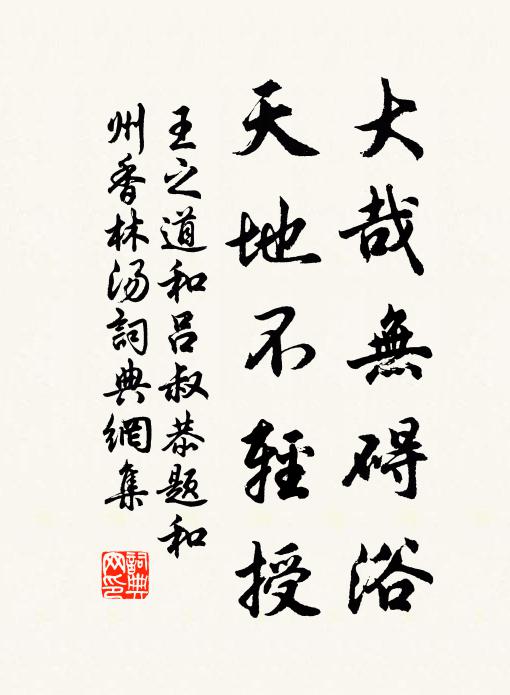 大哉無碍浴
天地不輕授
王之道和呂叔恭题和
州香林汤詞典網集
詞典
网印